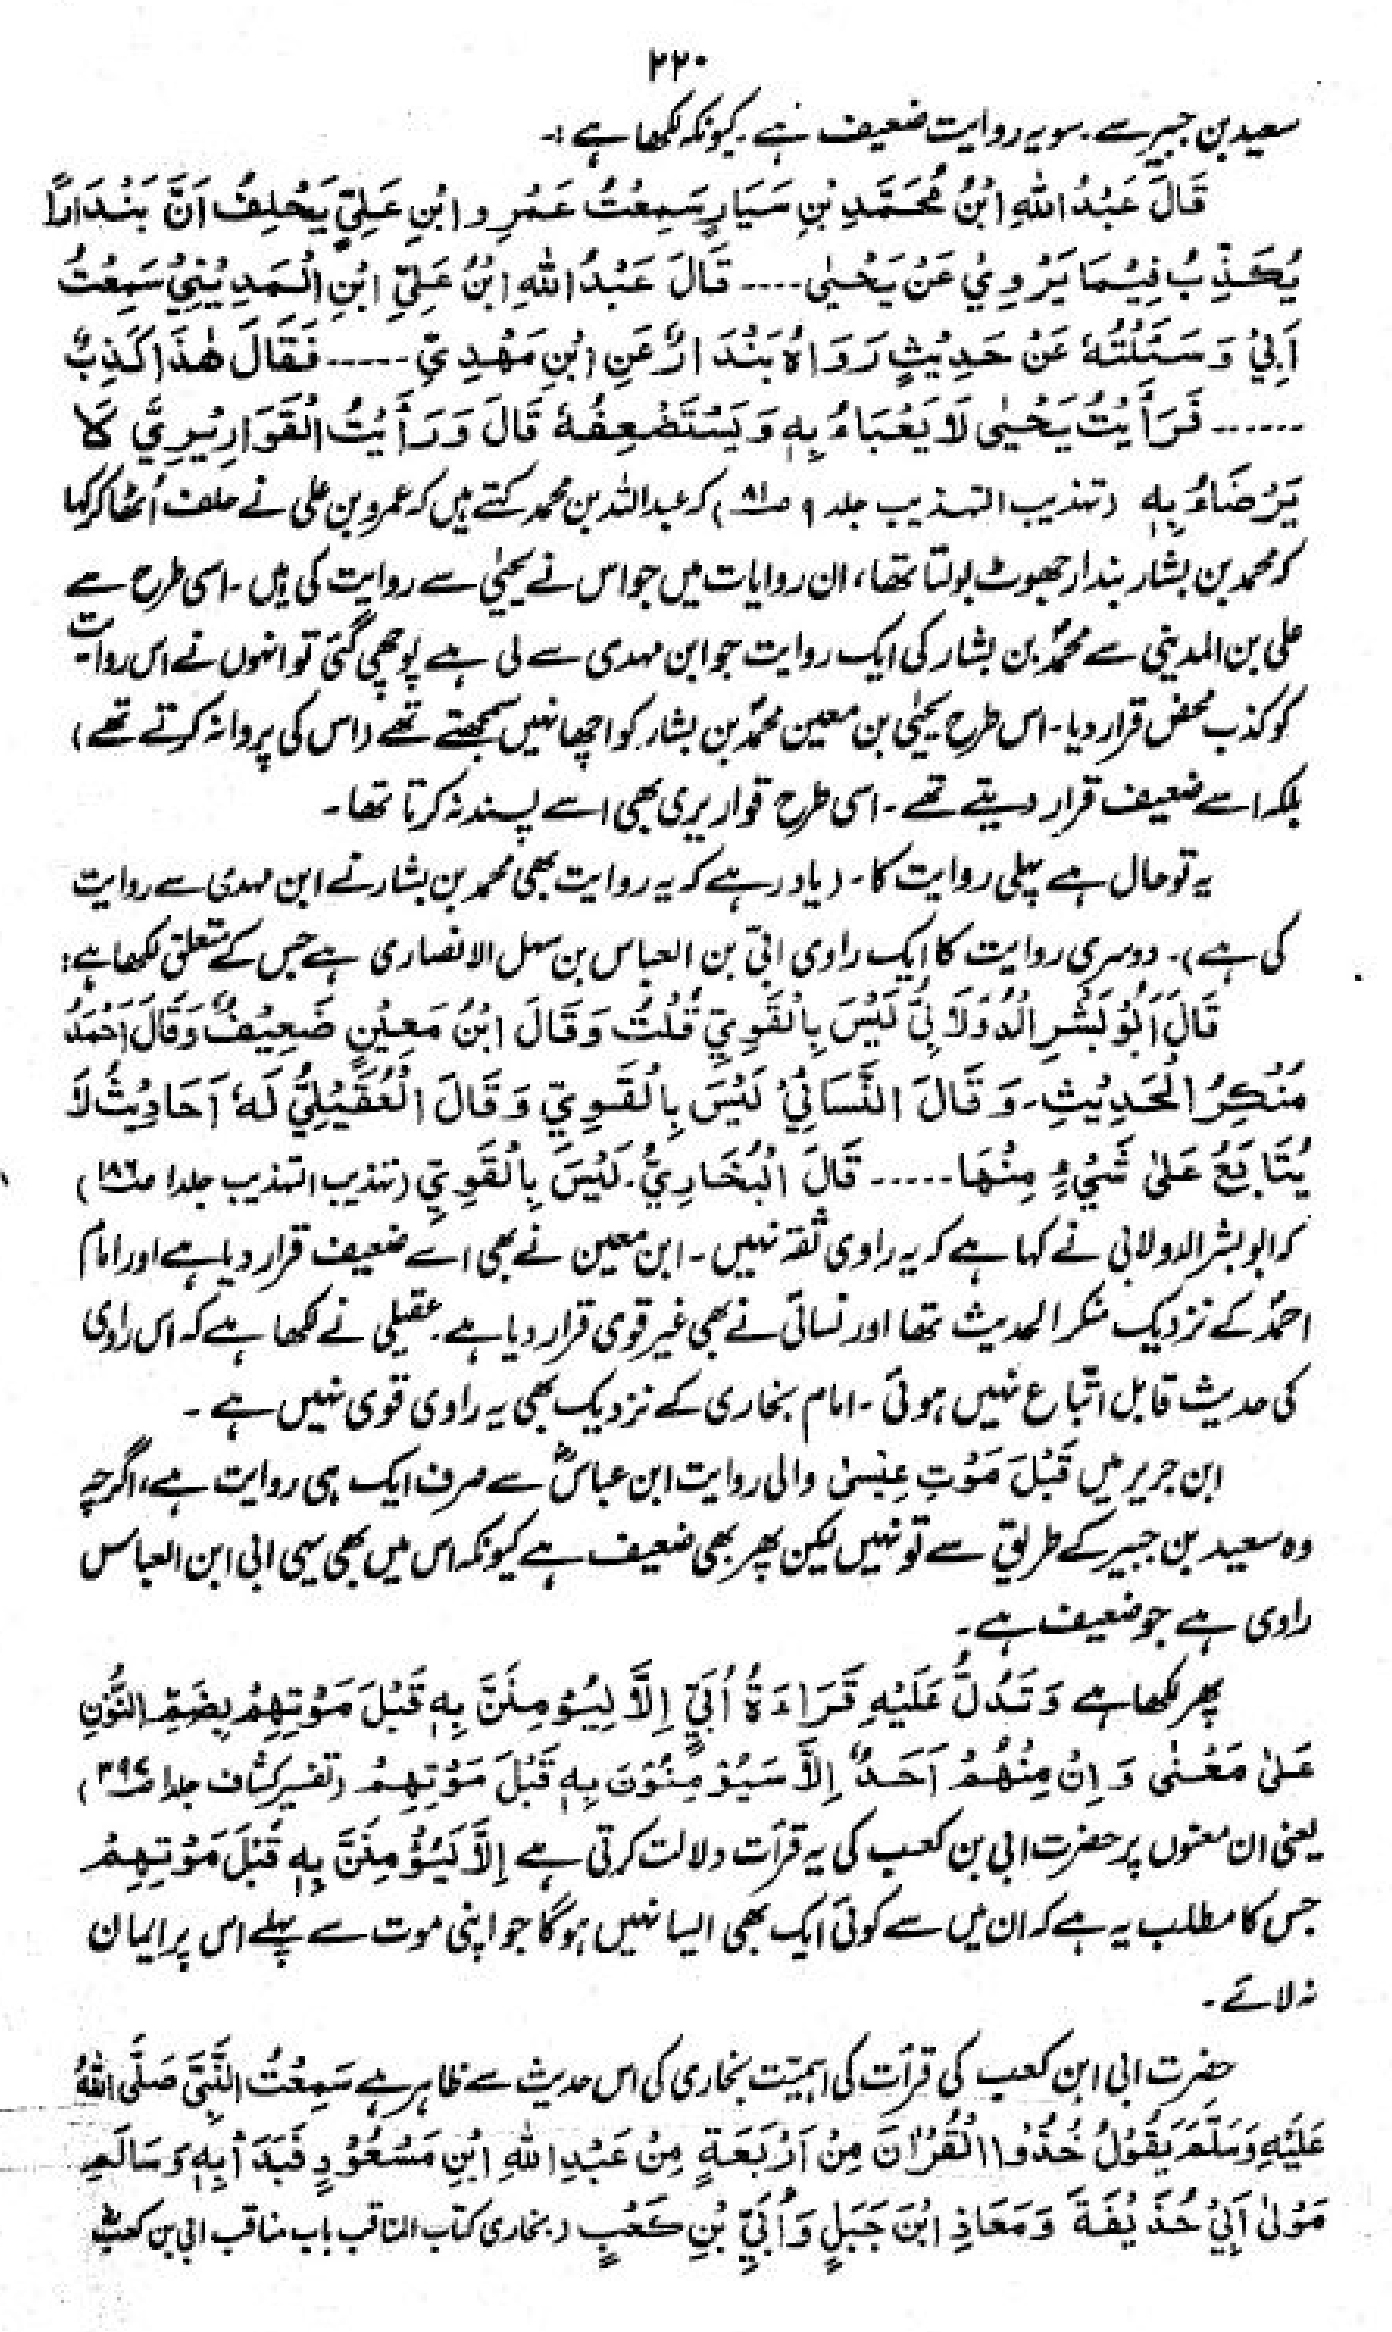 ۲۲۰
سعید بن جبیر سے۔ سو یہ روایت ضعیف ہے۔ کیونکہ لکھا ہے :۔
قَالَ عَبْدُ اللّٰهِ ابْنُ مُحَمَّدِ بْنِ سَيَارٍ سَمِعْتُ عَمْرِو ابْنِ عَلِيٍّ يَحْلِفُ اَنَّ بَنْدَارًا
يُكَذِّبُ فِيْمَا يَرْوِيْ عَنْ يَحْيٰى .... قَالَ عَبْدُ اللّٰهِ ابْنُ عَلِيِّ ابْنِ الْمَدِيْنِيْ سَمِعْتُ
اَبِيْ وَ سَئَلْتُهٗ عَنْ حَدِيْثٍ رَوَاهُ بَنْدَارٌ عَنِ ابْنِ مَهْدِيٍّ ..... فَقَالَ هٰذَا كَذِبٌ
...... فَرَأَيْتُ يَحْيٰى لَا يَعْبَاءُ بِهٖ وَ يَسْتَضْعِفُهٗ قَالَ وَ رَأَيْتُ الْقَوَارِيْرِيَّ لَا
يَرْضَاءُ بِهٖ (تہذیب التہذیب جلد ۹ ص۸۱) کہ عبداللہ بن محمد کہتے ہیں کہ عمرو بن علی نے حلف اُٹھا کر کہا
کہ محمد بن بشار بندار جھوٹ بولتا تھا، ان روایات میں جو اس نے یحییٰ سے روایت کی ہیں ۔ اسی طرح سے
علی بن المدینی سے محمدؐ بن بشار کی ایک روایت جو ابن مہدی سے لی ہے پوچھی گئی تو انہوں نے اس روایت
کو کذب محض قرار دیا۔ اس طرح یحیٰی بن معین محمدؐ بن بشار کو اچھا نہیں سمجھتے تھے (اس کی پروا نہ کرتے تھے)
بلکہ اسے ضعیف قرار دیتے تھے ۔ اسی طرح قواریری بھی اسے پسند نہ کرتا تھا ۔
یہ تو حال ہے پہلی روایت کا۔ (یاد رہے کہ یہ روایت بھی محمد بن بشار نے ابن مہدی سے روایت
کی ہے)۔ دوسری روایت کا ایک راوی ابیّ بن العباس بن سہل الانصاری ہے جس کے متعلق لکھا ہے:
قَالَ اَبُوْ بَشْرِ الدُّوَلَابِيُّ لَيْسَ بِالْقَوِيِّ قُلْتُ وَقَالَ ابْنُ مَعِيْنٍ ضَعِيْفٌ وَقَالَ اَحْمَدُ
مُنْكِرُ الْحَدِيْثِ۔ وَ قَالَ النَّسَائِيُّ لَيْسَ بِالْقَوِيِّ وَ قَالَ الْعُقَيْلِيُّ لَهٗ اَحَادِيْثُ لَا
يُتَابَعُ عَلٰى شَيْءٍ مِنْهَا ..... قَالَ الْبُخَارِيُّ۔ لَيْسَ بِالْقَوِيِّ (تہذیب التہذیب جلد۱ ص۱۸۶)
کہ ابو بشر الدولابی نے کہا ہے کہ یہ راوی ثقہ نہیں ۔ ابن معین نے بھی اسے ضعیف قرار دیا ہے اور امام
احمدؒ کے نزدیک منکر الحدیث تھا اور نسائی نے بھی غیر قوی قرار دیا ہے ۔ عقیلی نے لکھا ہے کہ اس راوی
کی حدیث قابل اتباع نہیں ہوتی ۔ امام بخاری کے نزدیک بھی یہ راوی قوی نہیں ہے ۔
ابن جریر میں قَبْلَ مَوْتِ عِيْسٰى والی روایت ابن عباسؓ سے صرف ایک ہی روایت ہے، اگرچہ
وہ سعید بن جبیر کے طریق سے تو نہیں لیکن پھر بھی ضعیف ہے کیونکہ اس میں بھی یہی ابی ابن العباس
راوی ہے جو ضعیف ہے ۔
پھر لکھا ہے وَ تَدُلُّ عَلَيْهِ قَرَاءَةُ اُبَيٍّ اِلَّا لِيُؤْمِنُنَّ بِهٖ قَبْلَ مَوْتِهِمْ بِضَمِّ النُّوْنِ
عَلٰى مَعْنٰى وَ اِنْ مِنْهُمْ اَحَدٌ اِلَّا سَيُؤْمِنُوْنَ بِهٖ قَبْلَ مَوْتِهِمْ (تفسیر کشاف جلد۱ ص۳۹۶)
یعنی ان معنوں پر حضرت ابی بن کعب کی یہ قرأت دلالت کرتی ہے اِلَّا لَيُؤْمِنُنَّ بِهٖ قَبْلَ مَوْتِهِمْ
جس کا مطلب یہ ہے کہ ان میں سے کوئی ایک بھی ایسا نہیں ہو گا جو اپنی موت سے پہلے اس پر ایمان
نہ لائے ۔
حضرت ابی ابن کعب کی قرأت کی اہمیّت بخاری کی اس حدیث سے ظاہر ہے سَمِعْتُ النَّبِيَّ صَلَّى اللّٰهُ
عَلَيْهِ وَسَلَّمَ يَقُوْلُ خُذُوْا الْقُرْاٰنَ مِنْ اَرْبَعَةٍ مِنْ عَبْدِ اللّٰهِ ابْنِ مَسْعُوْدٍ فَبَدَأَ بِهٖ وَ سَالَمِ
مَوْلٰى اَبِيْ حُذَيْفَةَ وَ مَعَاذِ ابْنَ جَبَلٍ وَ اُبَيِّ بْنِ كَعْبٍ (بخاری کتاب المناقب باب مناقب ابی بن کعبؓ